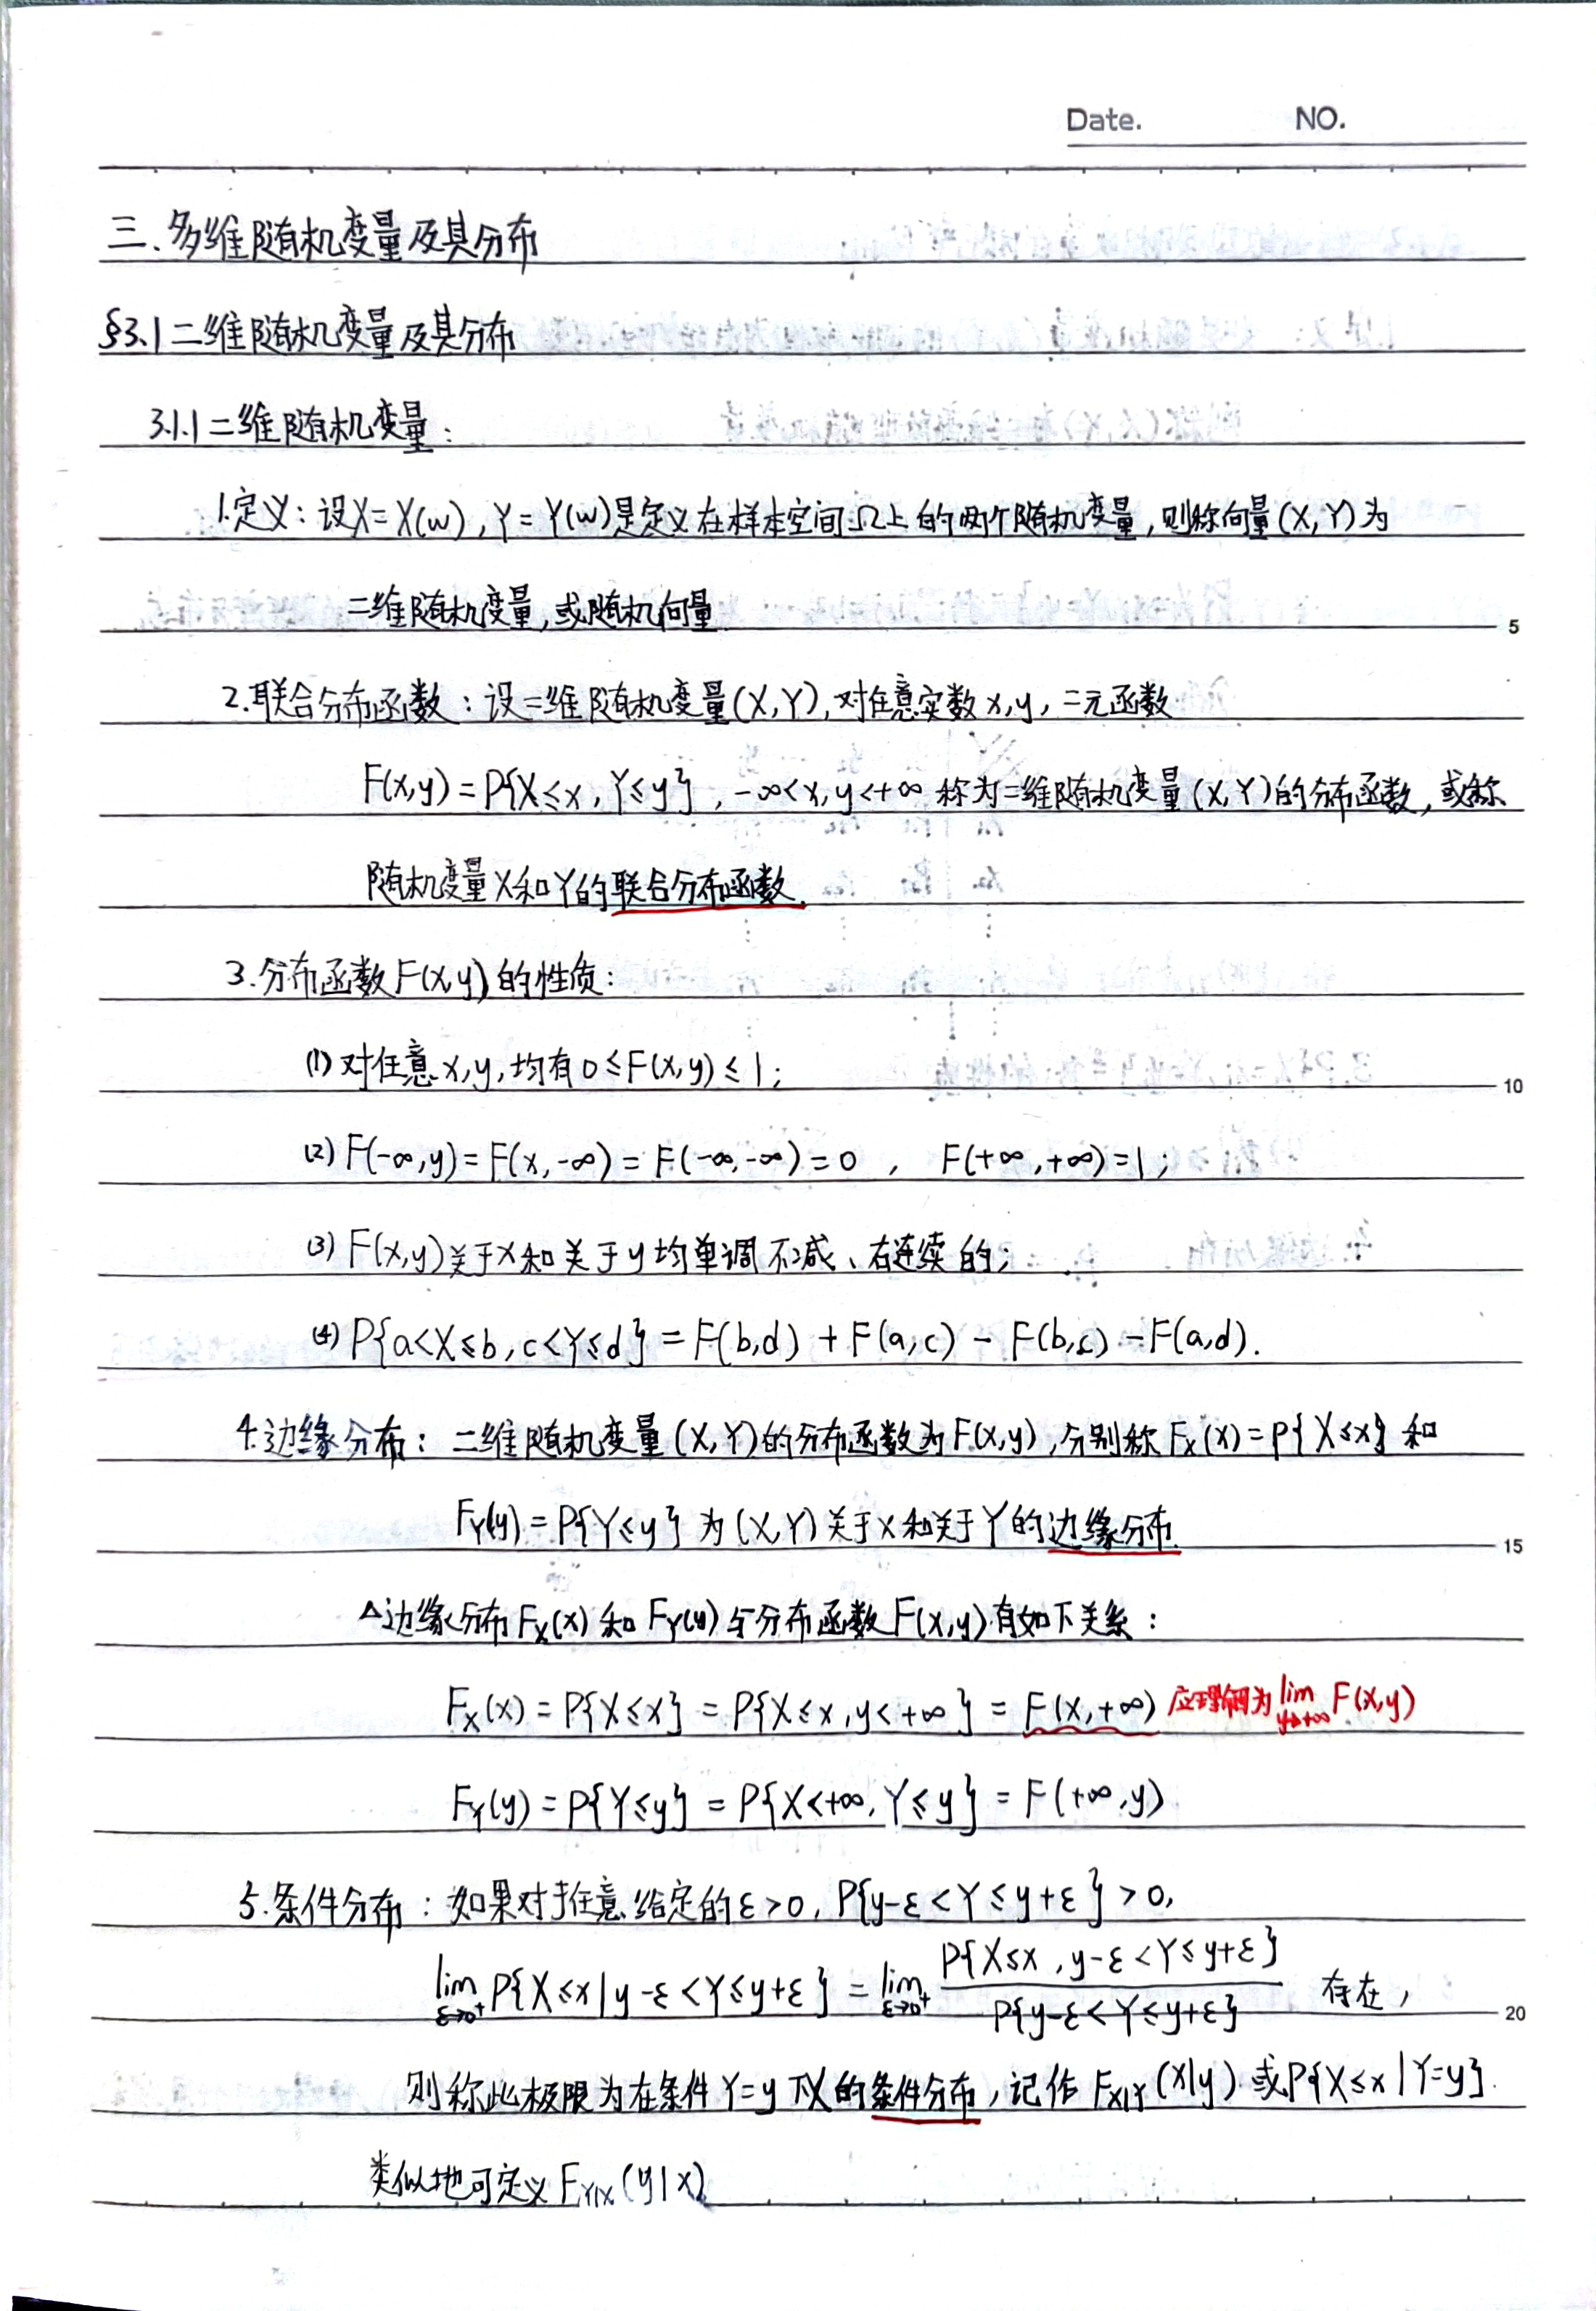 Date. NO.
三、多维随机变量及其分布
§3.1 二维随机变量及其分布
3.1.1 二维随机变量:
1.定义: 设X=X(w), Y=Y(w)是定义在样本空间Ω上的两个随机变量, 则称向量(X,Y)为
二维随机变量, 或随机向量.
5
2.联合分布函数: 设二维随机变量(X,Y), 对任意实数x,y, 二元函数
F(x,y)=P{X≤x, Y≤y}, -∞<x,y<+∞ 称为二维随机变量(X,Y)的分布函数, 或称
随机变量X和Y的联合分布函数.
3.分布函数F(x,y)的性质:
(1) 对任意x,y, 均有0≤F(x,y)≤1;
10
(2) F(-∞,y)=F(x,-∞)=F(-∞,-∞)=0 , F(+∞,+∞)=1;
(3) F(x,y)关于x和关于y均单调不减、右连续的;
(4) P{a<X≤b, c<Y≤d}=F(b,d)+F(a,c)-F(b,c)-F(a,d).
4.边缘分布: 二维随机变量(X,Y)的分布函数为F(x,y), 分别称F_X(x)=P{X≤x}和
F_Y(y)=P{Y≤y}为(X,Y)关于X和关于Y的边缘分布.
15
△边缘分布F_X(x)和F_Y(y)与分布函数F(x,y)有如下关系:
F_X(x)=P{X≤x}=P{X≤x, y<+∞}=F(x,+∞) 应理解为 lim_{y→+∞} F(x,y)
F_Y(y)=P{Y≤y}=P{X<+∞, Y≤y}=F(+∞,y)
5.条件分布: 如果对于任意给定的ε>0, P{y-ε<Y≤y+ε}>0,
lim_{ε→0⁺} P{X≤x|y-ε<Y≤y+ε} = lim_{ε→0⁺} P{X≤x, y-ε<Y≤y+ε} / P{y-ε<Y≤y+ε} 存在,
20
则称此极限为在条件Y=y下X的条件分布, 记作F_{X|Y}(x|y)或P{X≤x|Y=y}.
类似地可定义F_{Y|X}(y|x)